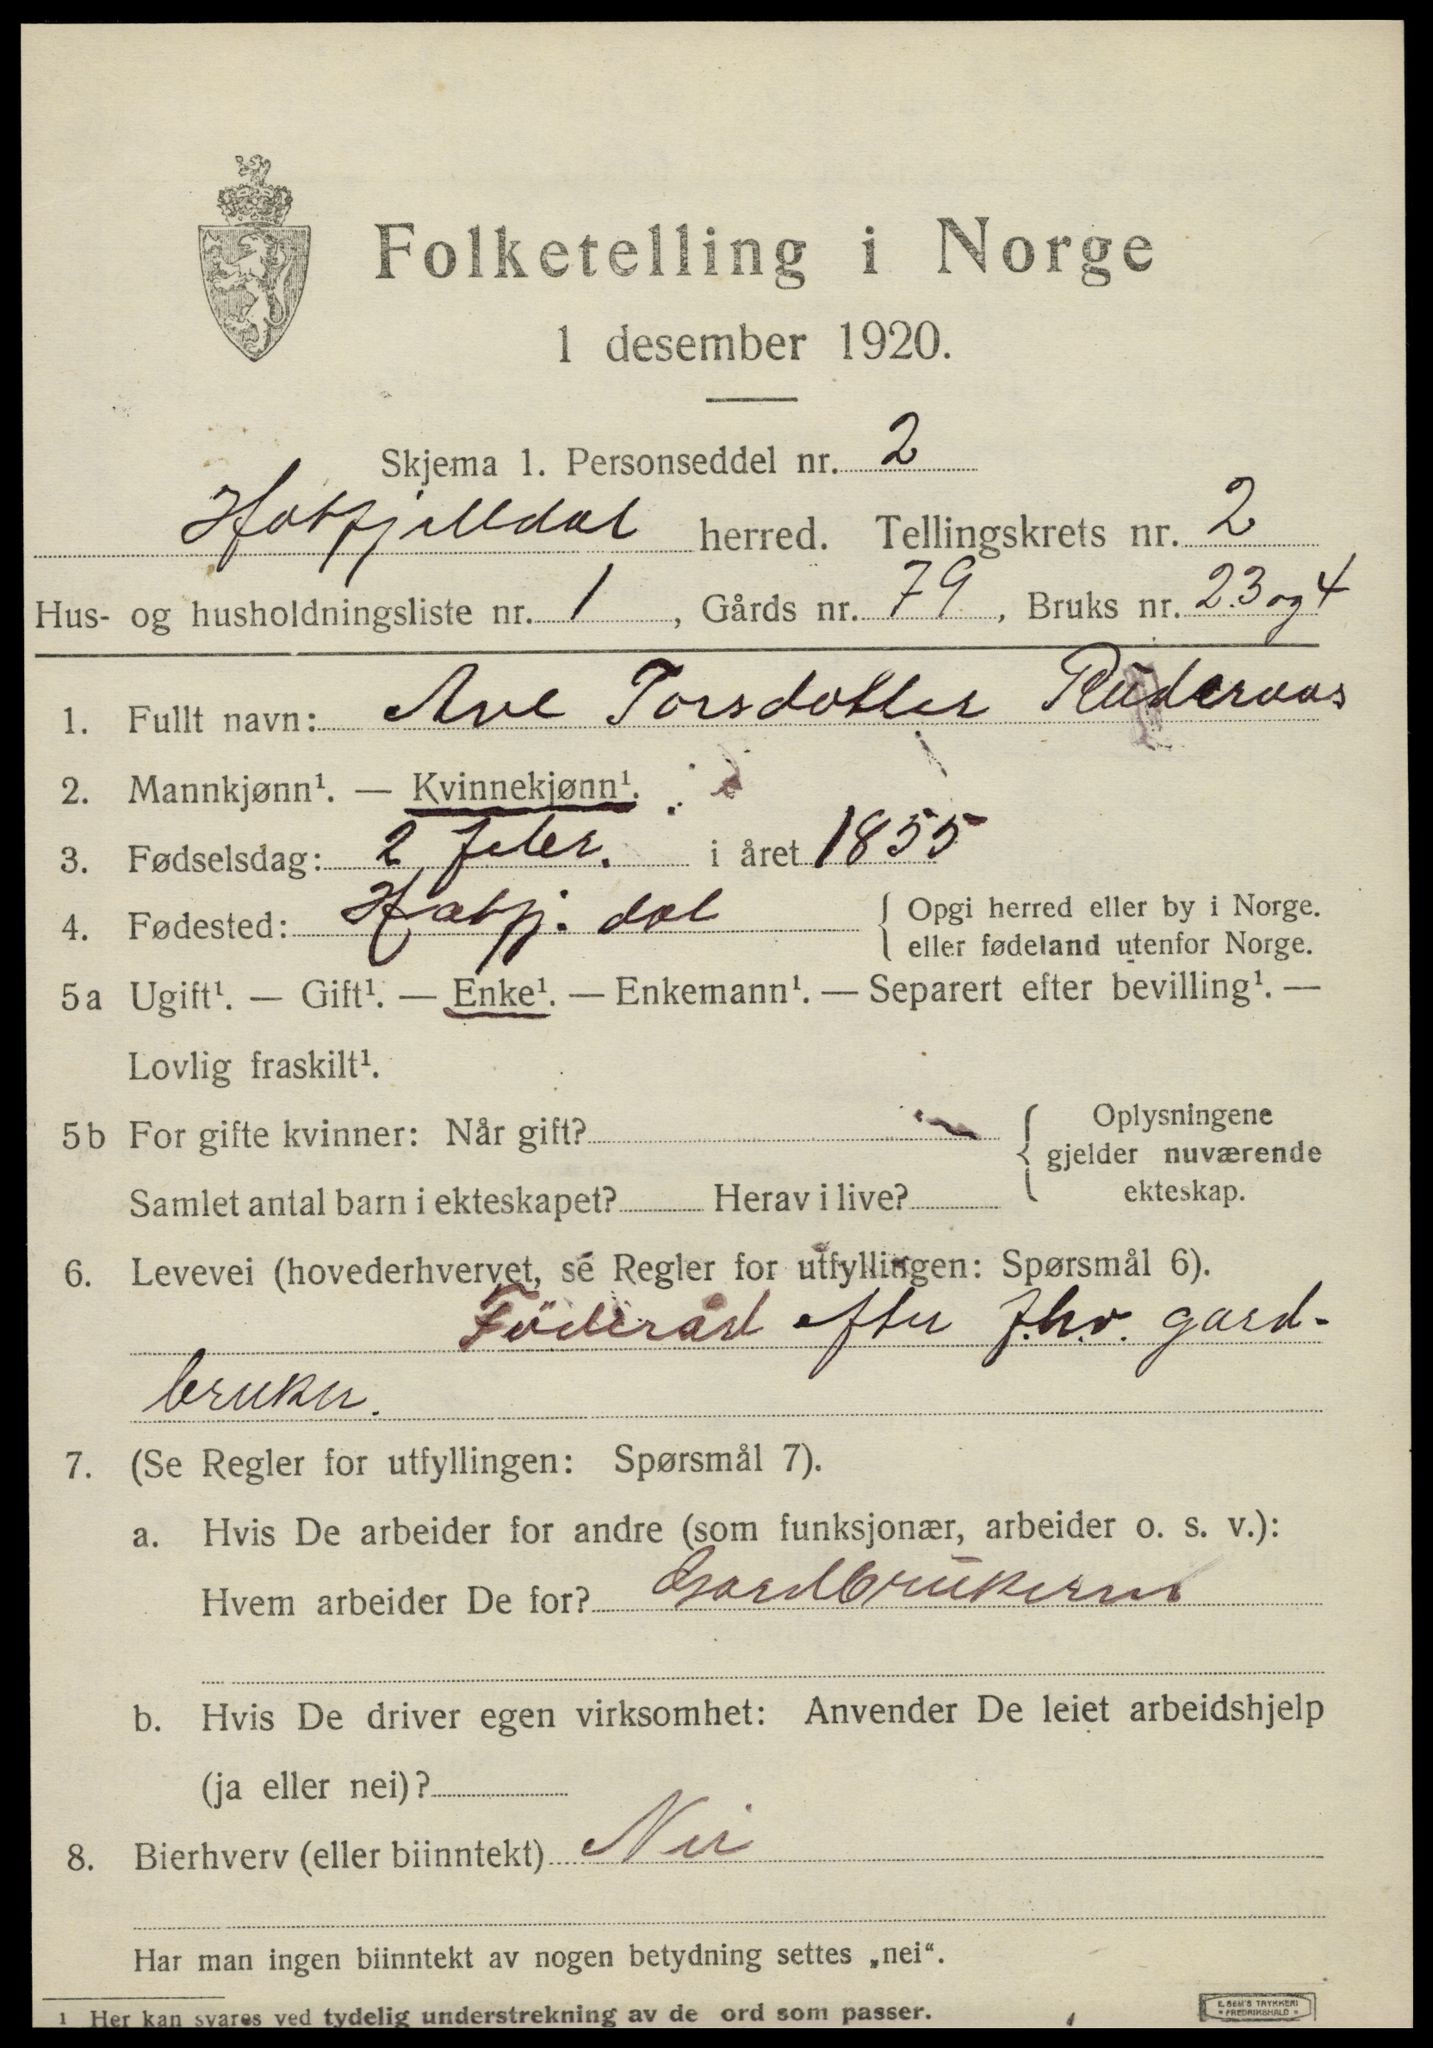 Folketelling i Norge
1 desember 1920.
Skjema 1. Personseddel nr. 2
Hatfjelldal herred. Tellingskrets nr. 2
Hus- og husholdningsliste nr. 1, Gårds nr. 79, Bruks nr. 2.3 og 4
1. Fullt navn: Ane Torsdotter
2. Mannkjønn¹. — Kvinnekjønn¹.
3. Fødselsdag: 2 feber. i året 1855
4. Fødested: Hatfj. dal { Opgi herred eller by i Norge.
eller fødeland utenfor Norge.
5a Ugift¹. — Gift¹. — Enke¹. — Enkemann¹. — Separert efter bevilling¹. —
Lovlig fraskilt¹.
5b For gifte kvinner: Når gift? { Oplysningene
gjelder nuværende
Samlet antal barn i ekteskapet? Herav i live? ekteskap.
6. Levevei (hovederhvervet, se Regler for utfyllingen: Spørsmål 6).
Föderåd efter f.h.v. gard-
bruker.
7. (Se Regler for utfyllingen: Spørsmål 7).
a. Hvis De arbeider for andre (som funksjonær, arbeider o. s. v.):
Hvem arbeider De for? Gardbrukeren
b. Hvis De driver egen virksomhet: Anvender De leiet arbeidshjelp
(ja eller nei)?
8. Bierhverv (eller biinntekt) Nei
Har man ingen biinntekt av nogen betydning settes „nei“.
1 Her kan svares ved tydelig understrekning av de ord som passer.
E. SEM'S TRYKKERI
FREDRIKSHALD